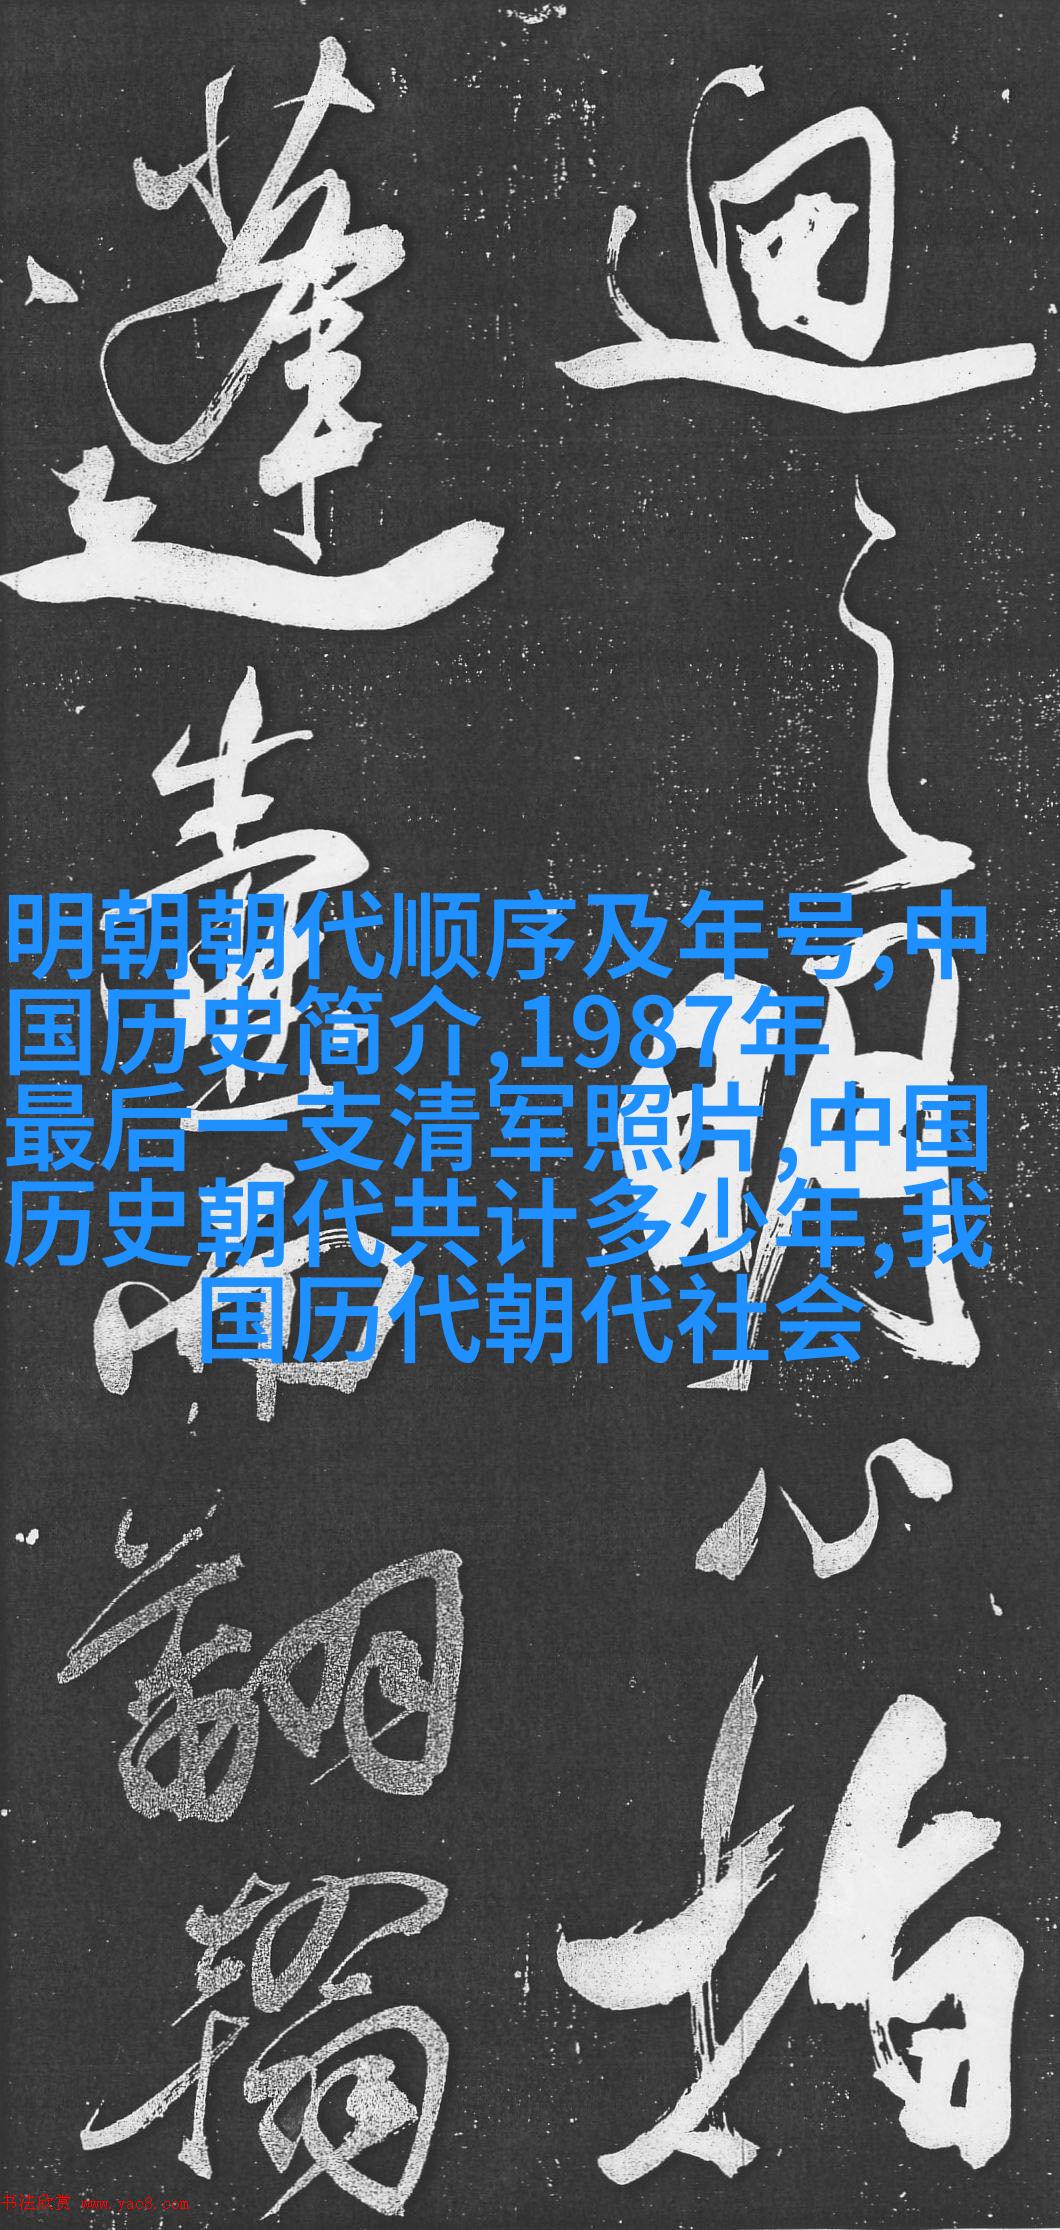 迴之明公指
蓬壶而翻翰
明朝朝代顺序及年号,中
国历史简介,1987年
最后一支清军照片,中国
历史朝代共计多少年,我
国历代朝代社会
书法欣赏 www.yac8.com